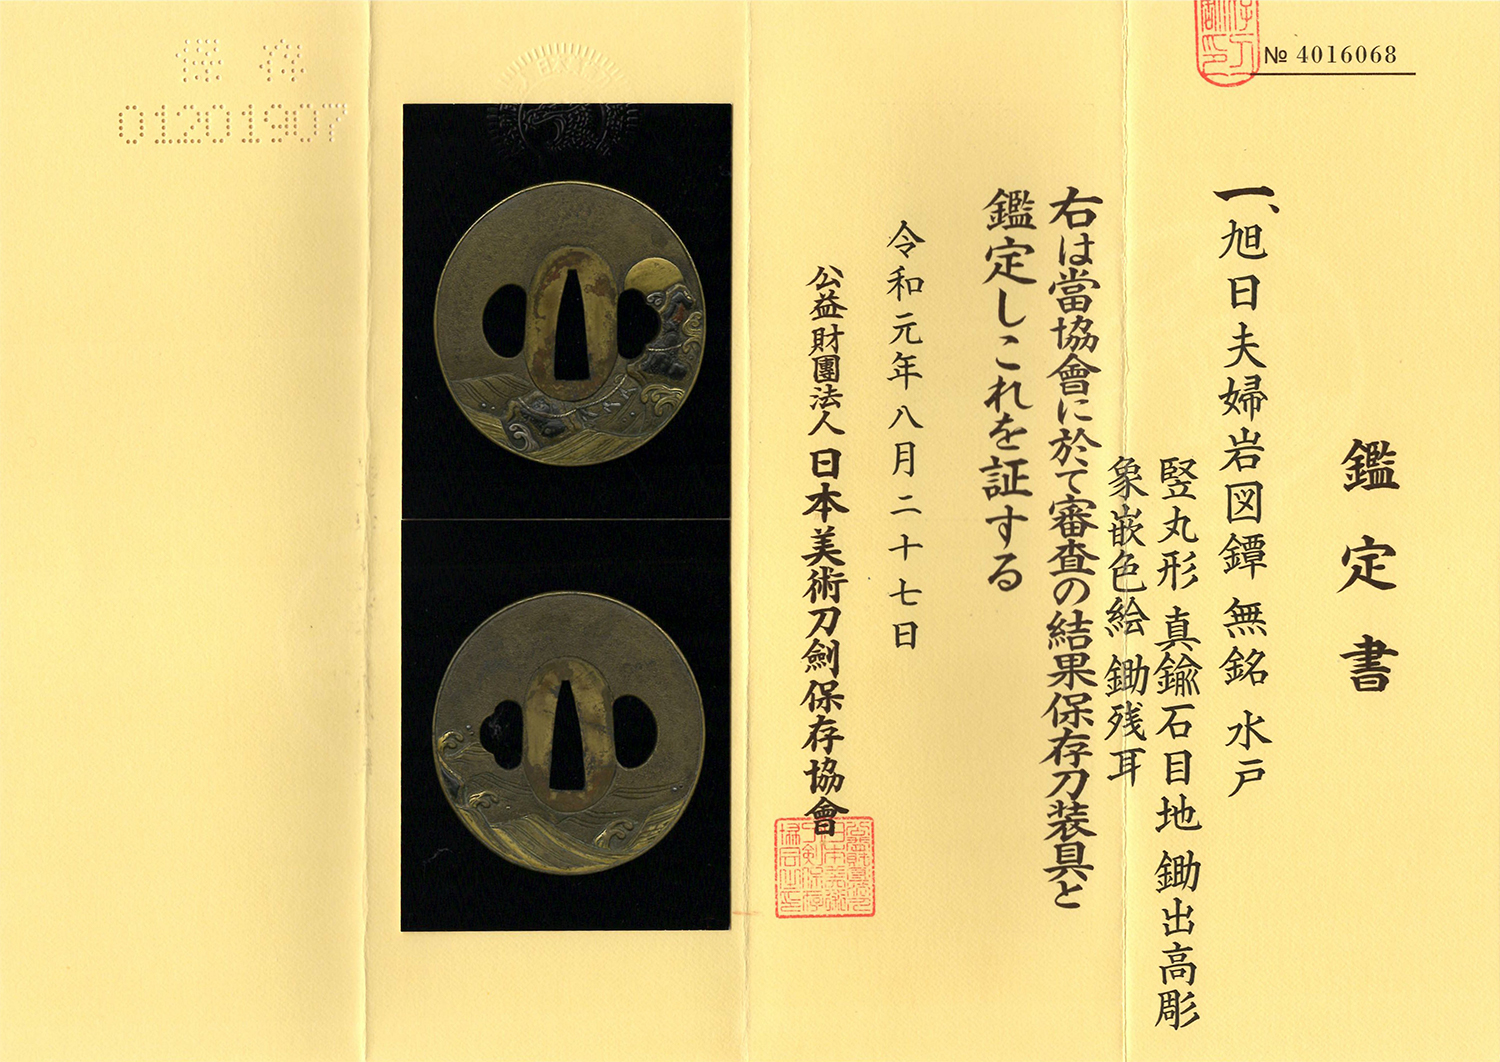 № 4016068
鑑定書
一、旭日夫婦岩図鐔 無銘 水戸
竪丸形 真鍮石目地 鋤出高彫
象嵌色絵 鋤残耳
右は當協會に於て審査の結果保存刀装具と
鑑定しこれを証する
令和元年八月二十七日
公益財團法人日本美術刀劍保存協會
保存
01201907